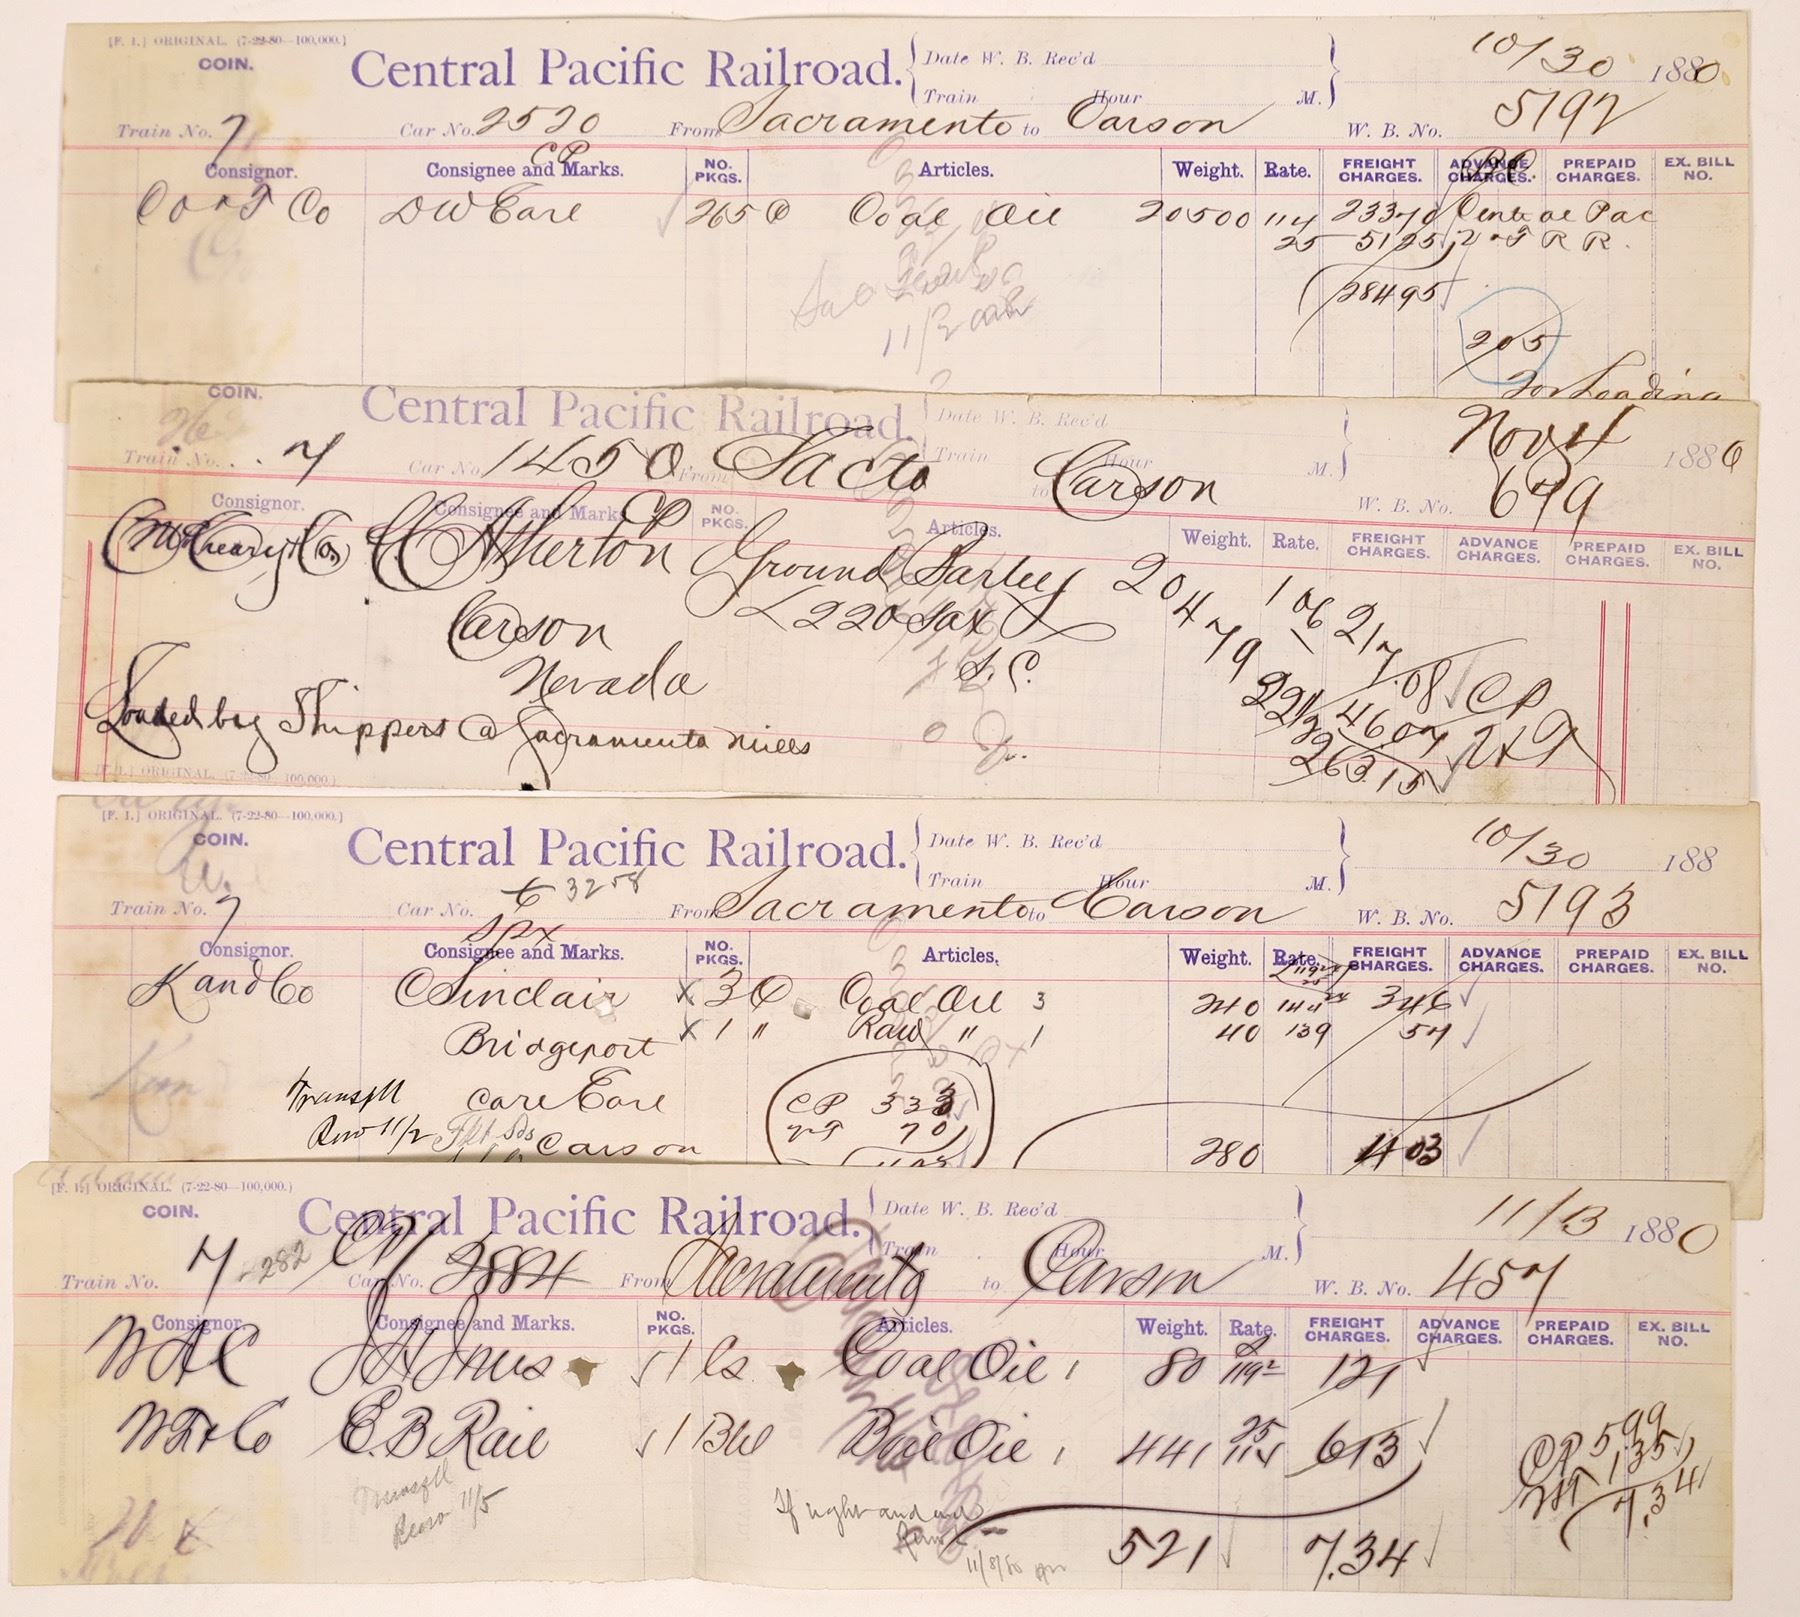 [F. I.] ORIGINAL. (7-22-80—100,000.)
COIN.
Central Pacific Railroad.
Date W. B. Rec'd
10/30 1880
Train Hour M.
Train No. 7 Car No. 2520 From Sacramento to Carson W. B. No. 5192
CP
Consignor. Consignee and Marks. NO. PKGS. Articles. Weight. Rate. FREIGHT CHARGES. ADVANCE CHARGES. PREPAID CHARGES. EX. BILL NO.
Co DW Earl 265 Coal Oil 20500 114 23370 Central Pac
25 5125 V & T R R.
28495
11/2
205
for Loading
COIN.
Central Pacific Railroad.
Date W. B. Rec'd
Nov 4 1880
Train No. 7 Car No. 1450 From Sacto Train Hour M.
to Carson W. B. No. 679
CP
Consignor. Consignee and Marks. NO. PKGS. Articles. Weight. Rate. FREIGHT CHARGES. ADVANCE CHARGES. PREPAID CHARGES. EX. BILL NO.
McCreary & Co Atherton Ground Barley 20479 106 217.08 CP
Carson 220 Sax
Nevada S. C. 22½ 46.07 V & T
Loaded by Shippers @ Sacramento Mills 263.15
[F. I.] ORIGINAL. (7-22-80—100,000.)
[F. I.] ORIGINAL. (7-22-80—100,000.)
COIN.
Central Pacific Railroad.
Date W. B. Rec'd
10/30 188
3258
Train Hour M.
Train No. 7 Car No. From Sacramento to Carson W. B. No. 5193
Consignor. Consignee and Marks. NO. PKGS. Articles. Weight. Rate. FREIGHT CHARGES. ADVANCE CHARGES. PREPAID CHARGES. EX. BILL NO.
K and Co C Sinclair x 3 Coal Oil 3 240 144 346
Bridgeport x 1 " Raw " 1 40 139 57
care Earl CP 333
Reno 11/2 V&T 70
Carson 280 403
[F. I.] ORIGINAL. (7-22-80—100,000.)
COIN.
Central Pacific Railroad.
Date W. B. Rec'd
11/13 1880
Train Hour M.
Train No. 7 282 Car No. 2884 From Sacramento to Carson W. B. No. 457
Consignor. Consignee and Marks. NO. PKGS. Articles. Weight. Rate. FREIGHT CHARGES. ADVANCE CHARGES. PREPAID CHARGES. EX. BILL NO.
WAC 1 Cs Coal Oil 1 80 119² 121
25
W F & Co E. B. Rail 1 Bbl Oil 1 441 114 613 CP 599
V&T 1.35
7.34
Reno 11/5
521 7.34
11/8/80